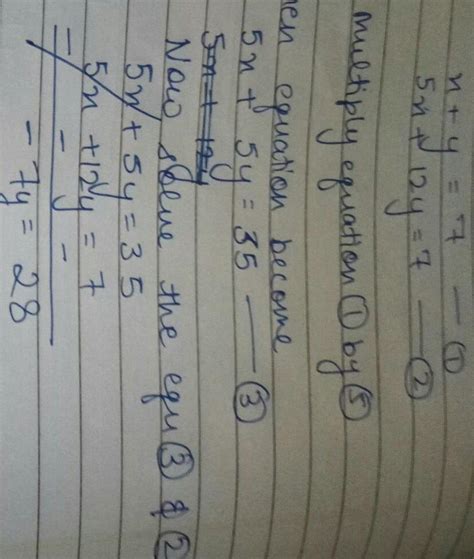 x + y = 7 — ①
5x + 12y = 7 — ②
multiply equation ① by ⑤
en equation become
5x + 5y = 35 — ③
5x + 12y
Now solve the equ ③ & ②
5x + 5y = 35
5x + 12y = 7
— — —
-7y = 28